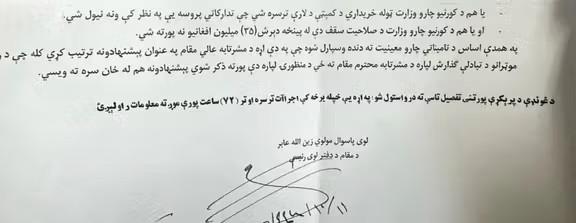 یا هم د کورنیو چارو وزارت ټوله خریداري د کمیټې د لارې ترسره شي چې تدارکاتي پروسه یې په نظر کې ونه نیول شي.
او یا هم د کورنیو چارو وزارت د صلاحیت سقف دې له پینځه دېرش(۳۵) میلیون افغانیو نه پورته شي.
په همدې اساس د تامیناتي چارو معینیت ته دنده وسپارل شوه چې په دې اړه د مشرتابه عالي مقام په عنوان پیشنهادونه ترتیب کړي کله چې د
موټرانو د تبادلې گذارش لپاره د مشرتابه محترم مقام ته ځي د منظورۍ لپاره دې پورته ذکر شوي پیشنهادونه هم له ځان سره ته ویسي.
د غونډې د پرېکړې پورتنی تفصیل تاسې ته در واستول شو؛ په اړه یې خپله برخه کې اجراآت ترسره او تر (۷۲) ساعت پورې موږ ته معلومات را ولیږئ.
لوی پاسوال مولوي زین الله عابر
د مقام د دفتر لوی رئیس